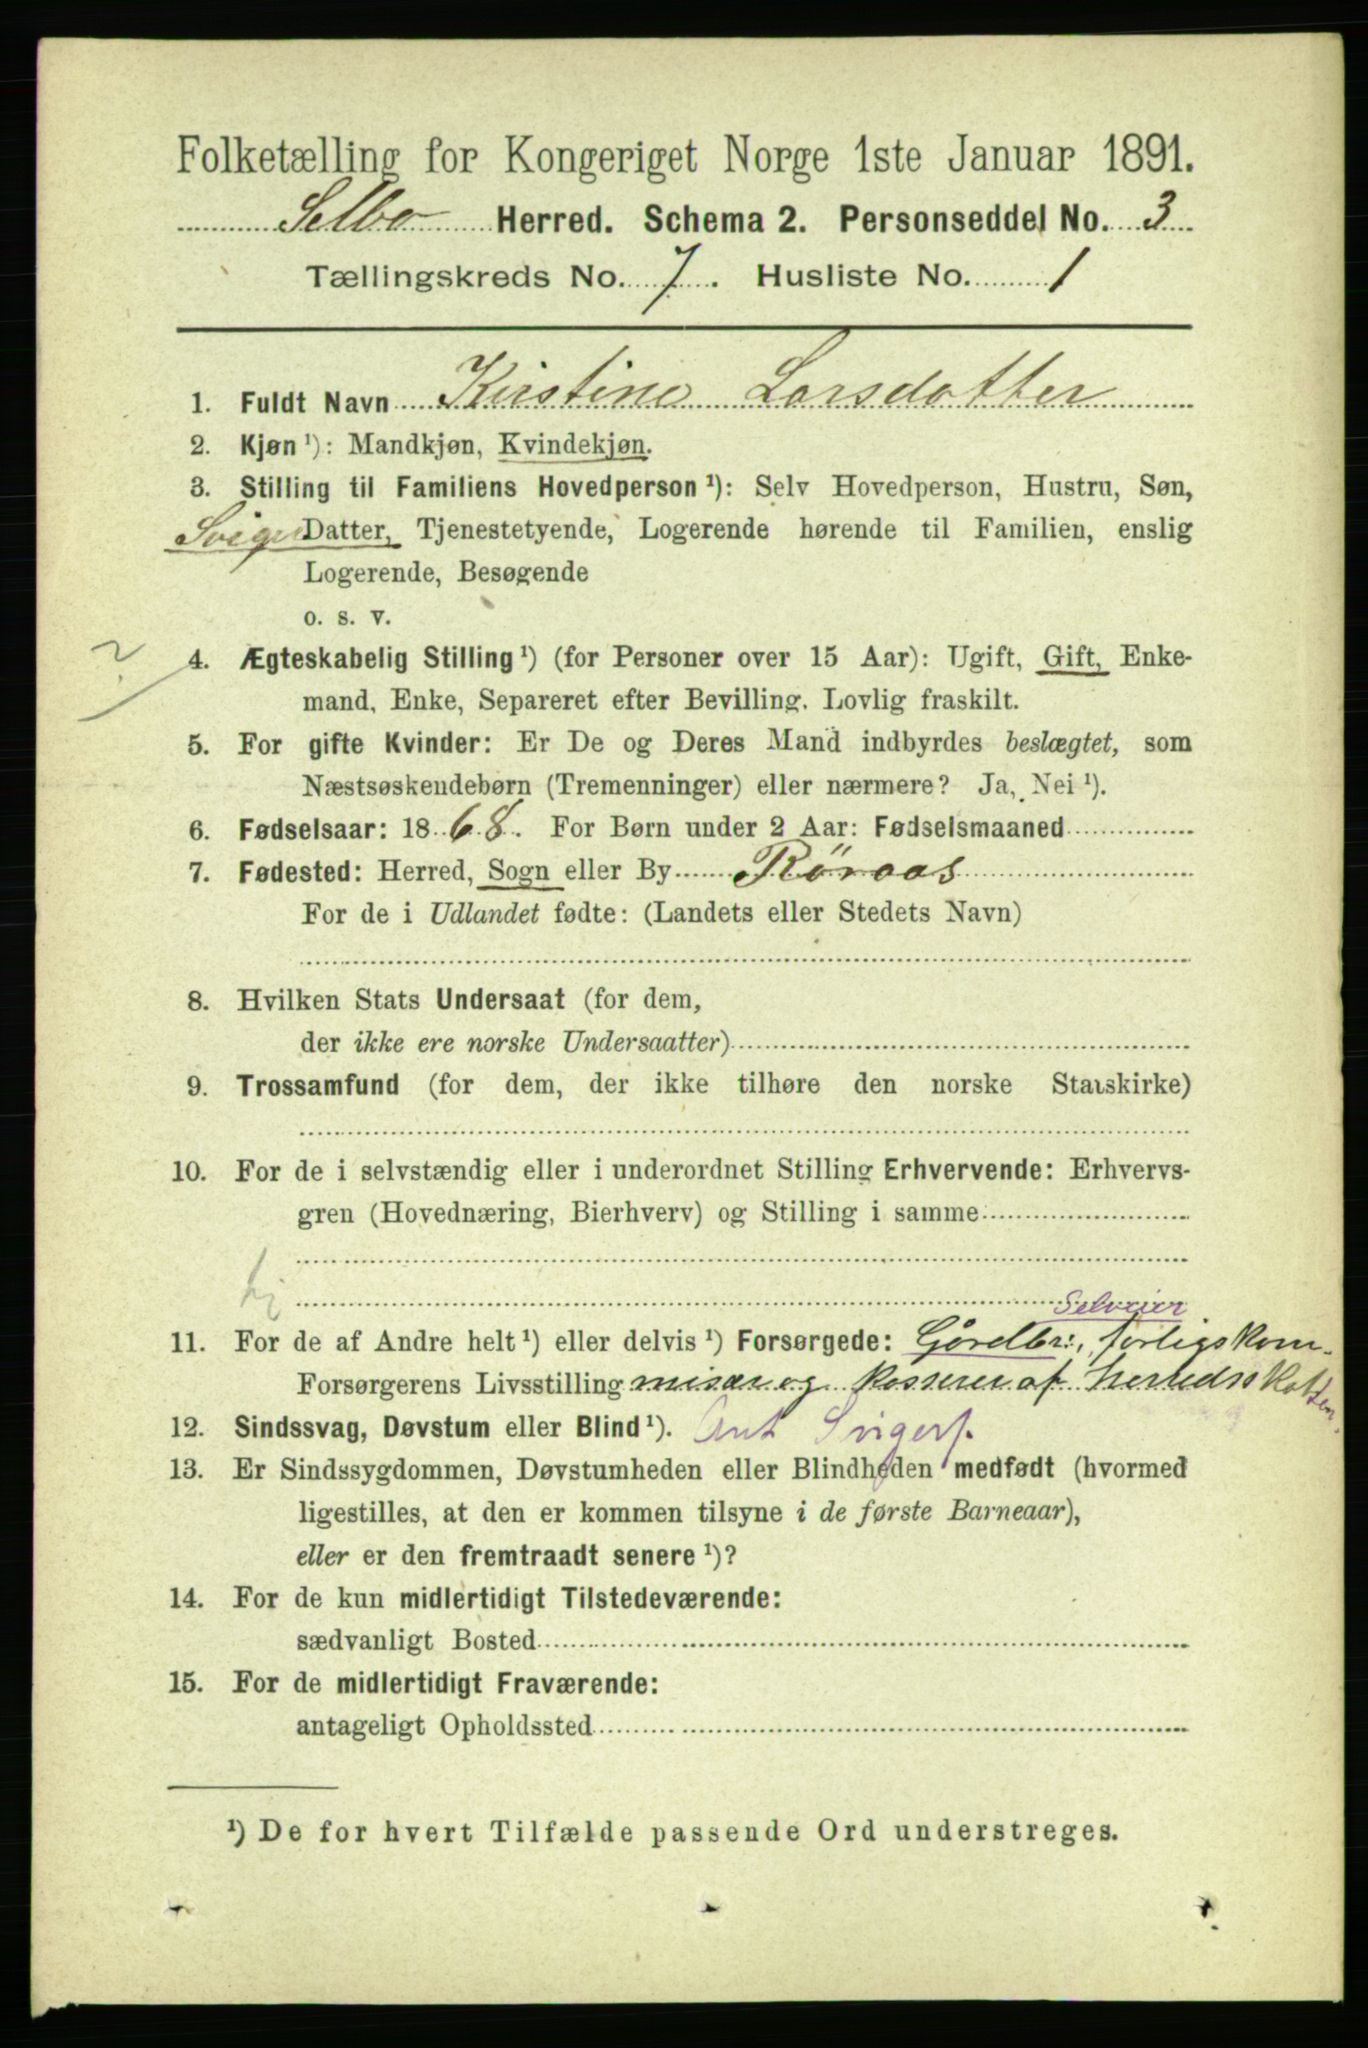 Folketælling for Kongeriget Norge 1ste Januar 1891.
Selbo Herred. Schema 2. Personseddel No. 3
Tællingskreds No. 7. Husliste No. 1
1. Fuldt Navn Kirstine Larsdatter
2. Kjøn ¹): Mandkjøn, Kvindekjøn.
3. Stilling til Familiens Hovedperson ¹): Selv Hovedperson, Hustru, Søn,
Sviger Datter, Tjenestetyende, Logerende hørende til Familien, enslig
Logerende, Besøgende
o. s. v.
4. Ægteskabelig Stilling ¹) (for Personer over 15 Aar): Ugift, Gift, Enke-
mand, Enke, Separeret efter Bevilling. Lovlig fraskilt.
5. For gifte Kvinder: Er De og Deres Mand indbyrdes beslægtet, som
Næstsøskendebørn (Tremenninger) eller nærmere? Ja, Nei ¹).
6. Fødselsaar: 1868. For Børn under 2 Aar: Fødselsmaaned
7. Fødested: Herred, Sogn eller By Röraas
For de i Udlandet fødte: (Landets eller Stedets Navn)
8. Hvilken Stats Undersaat (for dem,
der ikke ere norske Undersaatter)
9. Trossamfund (for dem, der ikke tilhøre den norske Statskirke)
10. For de i selvstændig eller i underordnet Stilling Erhvervende: Erhvervs-
gren (Hovednæring, Bierhverv) og Stilling i samme
Selveier
11. For de af Andre helt ¹) eller delvis ¹) Forsørgede: Gårdbr:, forligskom-
Forsørgerens Livsstilling misær og kasserer af herredsskatten
12. Sindssvag, Døvstum eller Blind ¹). Ant Svigerf.
13. Er Sindssygdommen, Døvstumheden eller Blindheden medfødt (hvormed
ligestilles, at den er kommen tilsyne i de første Barneaar),
eller er den fremtraadt senere ¹)?
14. For de kun midlertidigt Tilstedeværende:
sædvanligt Bosted
15. For de midlertidigt Fraværende:
antageligt Opholdssted
¹) De for hvert Tilfælde passende Ord understreges.